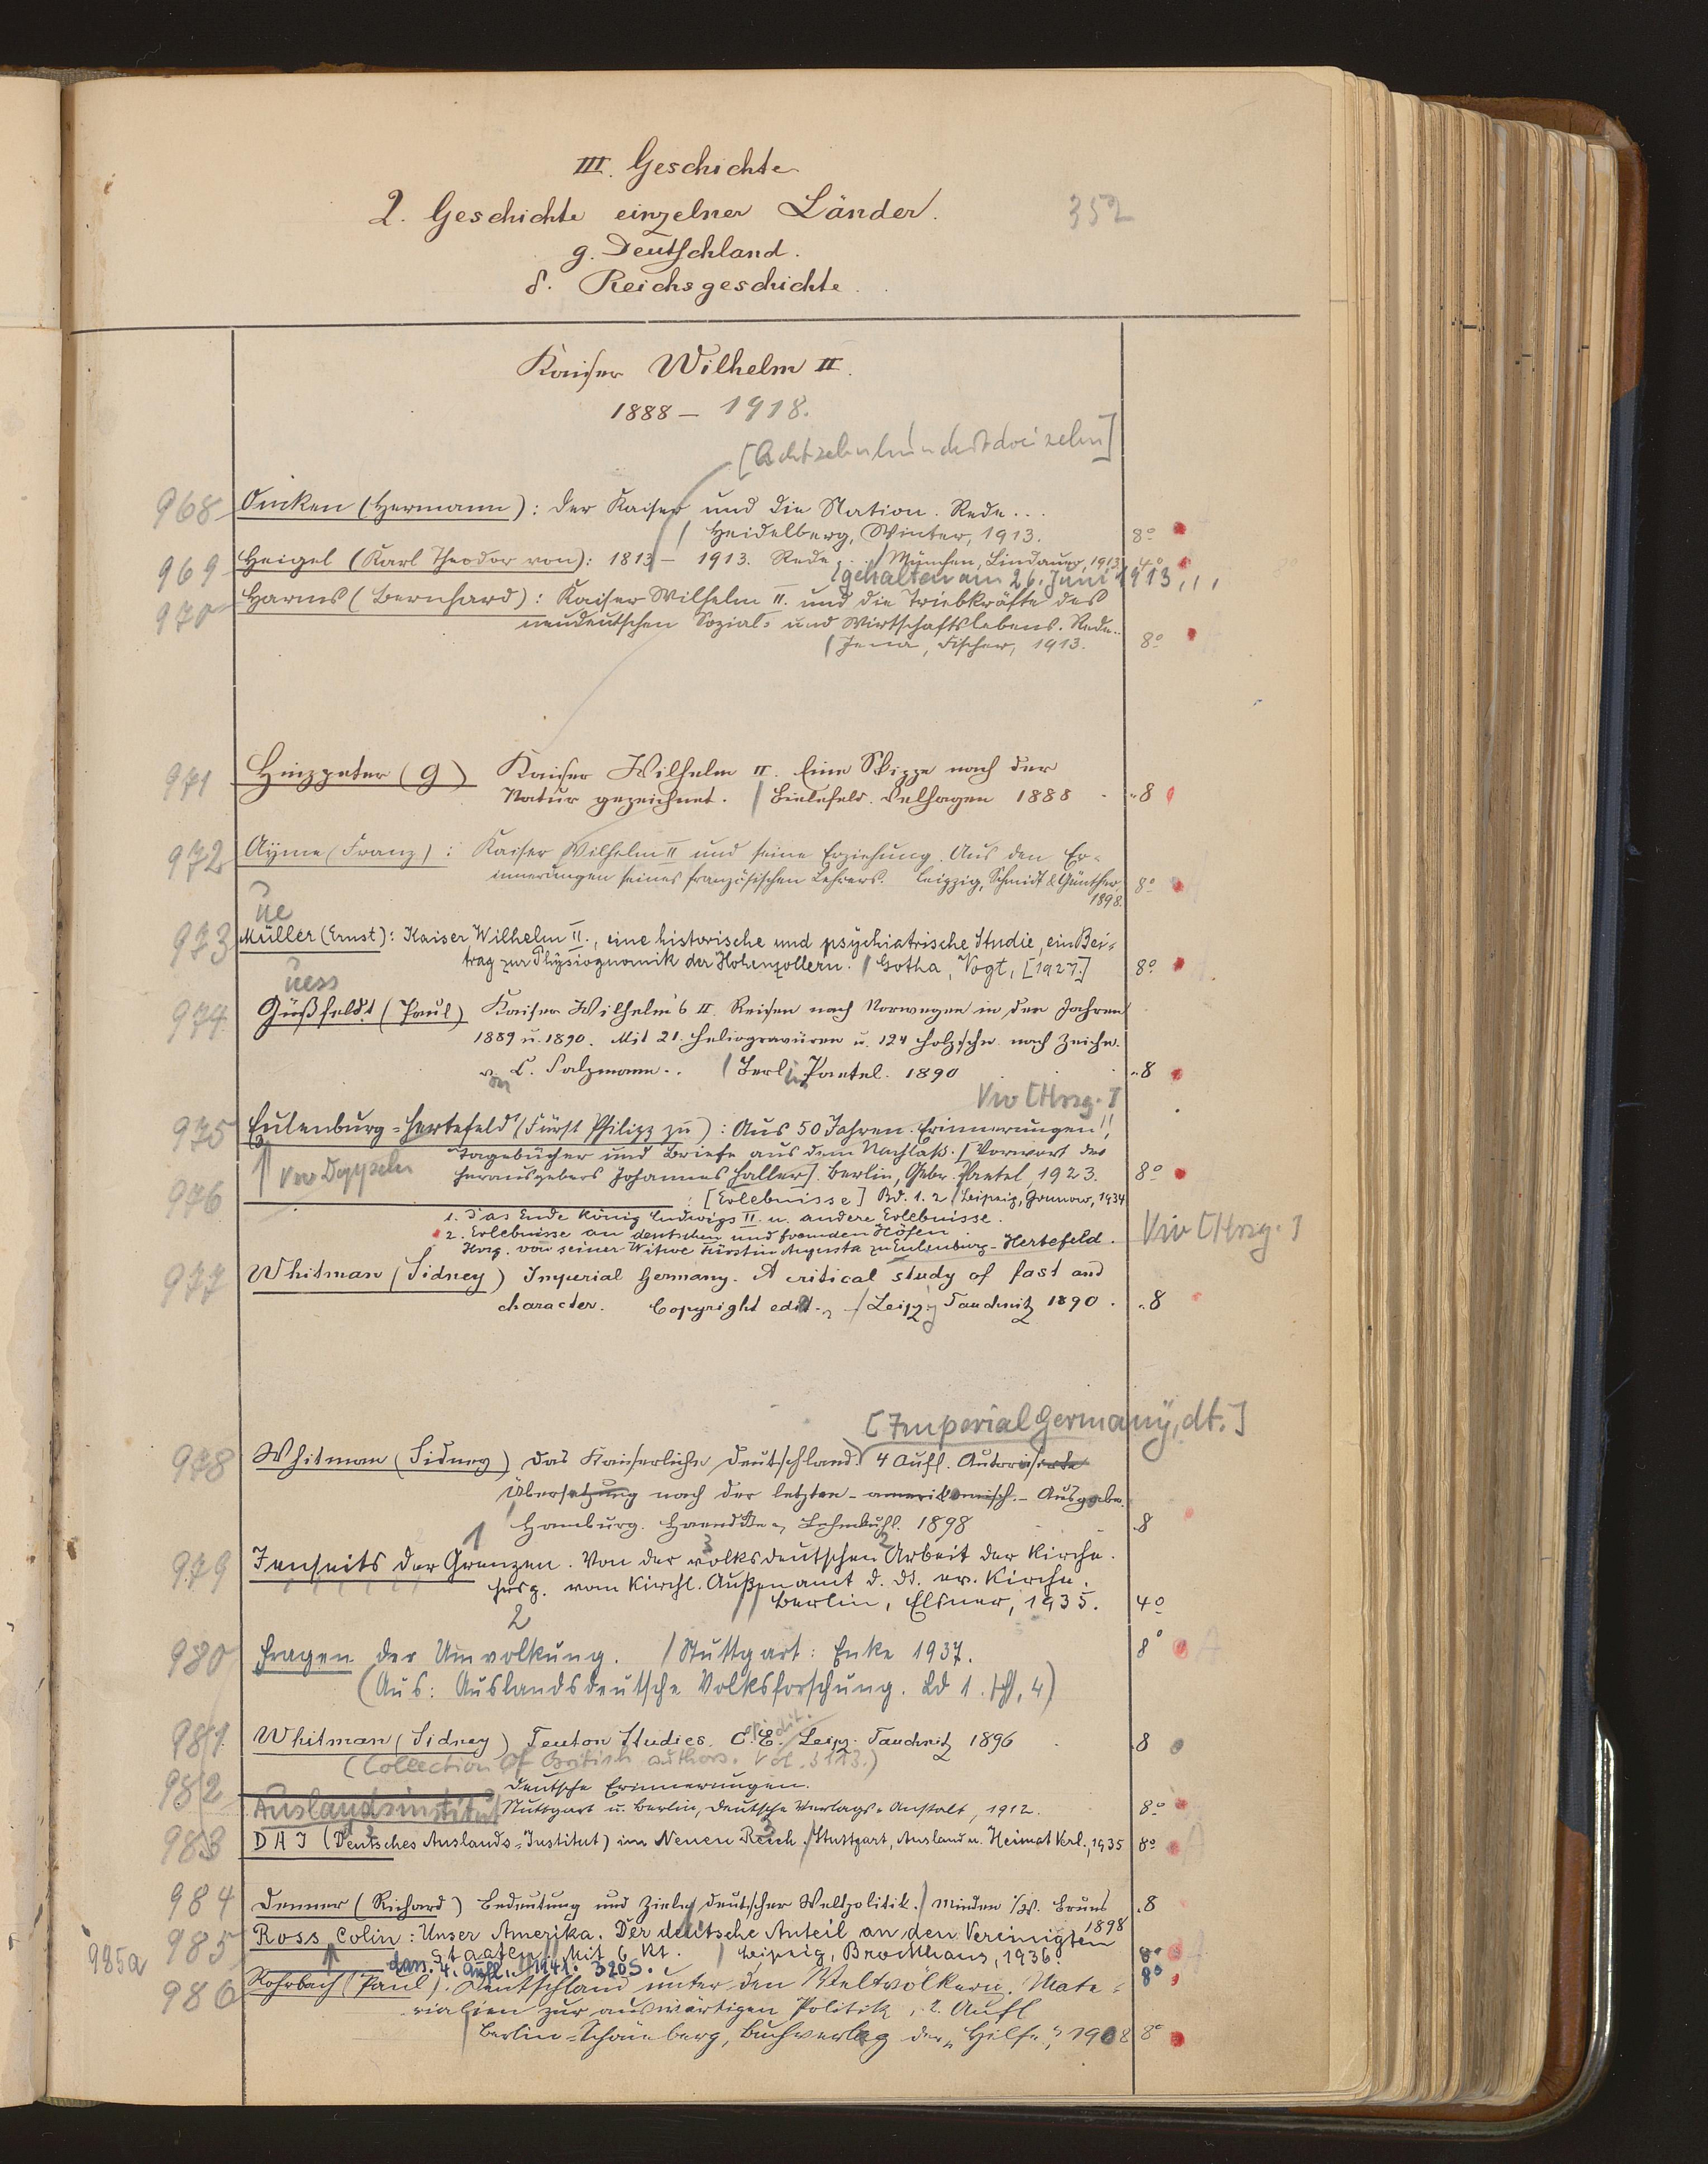 III. Geschichte
2. Geschichte einzelner Länder.
352
g. Deutschland.
δ. Reichsgeschichte.
Kaiser Wilhelm II.
1888 – 1918.
[Achtzehnhundertdreizehn]
968 Oncken (Hermann): Der Kaiser und die Nation. Rede...
/ Heidelberg, Winter, 1913. 8°
969 Heigel (Karl Theodor von): 1813 – 1913. Rede... / München, Lindauer, 1913. 4°
gehalten am 26. Juni 1913,,,
970 Harms (Bernhard): Kaiser Wilhelm II. und die Triebkräfte des
neudeutschen Sozial- und Wirtschaftslebens. Rede..
/ Jena, Fischer, 1913. 8°
971 Hinzpeter (G) Kaiser Wilhelm II. Eine Skizze nach der
Natur gezeichnet. / Bielefeld. Velhagen 1888 8
972 Ayme (Franz): Kaiser Wilhelm II und seine Erziehung. Aus den Er-
innerungen seines französischen Lehrers. Leipzig, Schmidt & Günther, 8°
1898.
ue
973 Müller (Ernst): Kaiser Wilhelm II., eine historische und psychiatrische Studie, ein Bei-
trag zur Physiognomik der Hohenzollern. / Gotha, Vogt, [1927.] 8°
uess
974 Güßfeldt (Paul) Kaiser Wilhelm's II. Reisen nach Norwegen in den Jahren
1889 u. 1890. Mit 21. Heliogravüren u. 124 Holzschn. nach Zeichn.
von C. Salzmann.. / Berlin Paetel. 1890 8
Vw [Hrsg.]
975 Eulenburg-Hertefeld (Fürst Philipp zu): Aus 50 Jahren. Erinnerungen,
Tagebücher und Briefe aus dem Nachlaß. [Vorwort des
Herausgebers Johannes Haller]. Berlin, Gebr. Paetel, 1923. 8°
976 : [Erlebnisse] Bd. 1. 2 / Leipzig, Grunow, 1934
1. Das Ende König Ludwigs II. u. andere Erlebnisse.
2. Erlebnisse an deutschen und fremden Höfen.
Hrsg. von seiner Witwe Fürstin Augusta zu Eulenburg-Hertefeld.
Vw [Hrsg.]
977 Whitman (Sidney) Imperial Germany. A critical study of fact and
character. Copyright edit. / Leipzig Tauchnitz 1890. 8
[Imperial Germany, dt.]
978 Whitman (Sidney) Das Kaiserliche Deutschland. 4 Aufl. Autorisierte
Übersetzung nach der letzten - amerikanisch. - Ausgabe.
/ Hamburg. Haendcke & Lehmkuhl. 1898 8
1 3 2
979 Jenseits der Grenzen. Von der volksdeutschen Arbeit der Kirche.
Hrsg. vom Kirchl. Außenamt d. dt. ev. Kirche.
// Berlin, Elsner, 1935. 4°
2
980 Fragen der Umvolkung. / Stuttgart: Enke 1937. 8°
(Aus: Auslandsdeutsche Volksforschung. Bd 1. H, 4)
981 Whitman (Sidney) Teuton Studies. C. E. / Leipz. Tauchnitz 1896 8
(Collection of British authors. Vol. 3113.)
982 Deutsche Erinnerungen.
Stuttgart u. Berlin, Deutsche Verlags-Anstalt, 1912. 8°
Auslandsinstitut
983 DAI (Deutsches Auslands-Institut) im Neuen Reich. / Stuttgart, Ausland u. Heimat Verl., 1935 8°
984 Denner (Richard) Bedeutung und Ziele deutscher Weltpolitik. / Minden i/W. Bruns 8
1898
985 Ross, Colin: Unser Amerika. Der deutsche Anteil an den Vereinigten
Staaten. // Mit 6 Kt. / Leipzig, Brockhaus, 1936. 8°
985a dass. 4. Aufl. 1941: 320 S. 8°
986 Rohrbach (Paul). Deutschland unter den Weltvölkern. Mate-
rialien zur auswärtigen Politik, 2. Aufl
/ Berlin-Schöneberg, Buchverlag der "Hilfe", 1908 8°